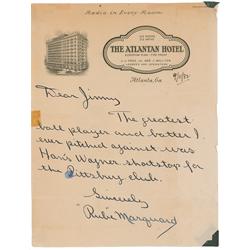 Radio in Every Room
THE ATLANTAN HOTEL
Atlanta, Ga
Dear Jimmy
The greatest
ball player and batter I
ever pitched against was
Hans Wagner shortstop for
the Pittsburg club.
Sincerely
"Rube" Marquard